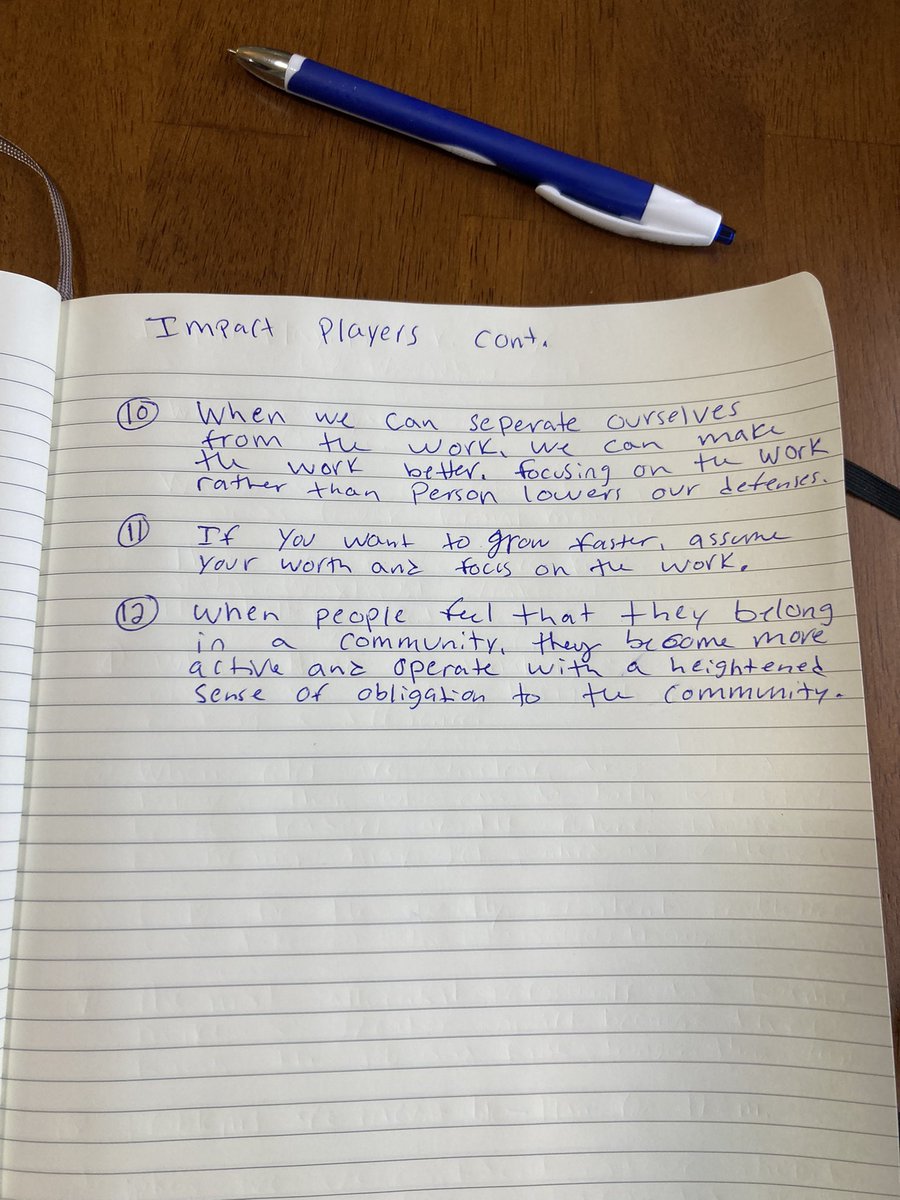 Impact Players cont.
10 When we can seperate ourselves
from the work, we can make
the work better. focusing on the work
rather than person lowers our defenses.
11 If you want to grow faster, assume
your worth and focus on the work.
12 when people feel that they belong
in a community, they become more
active and operate with a heightened
sense of obligation to the community.